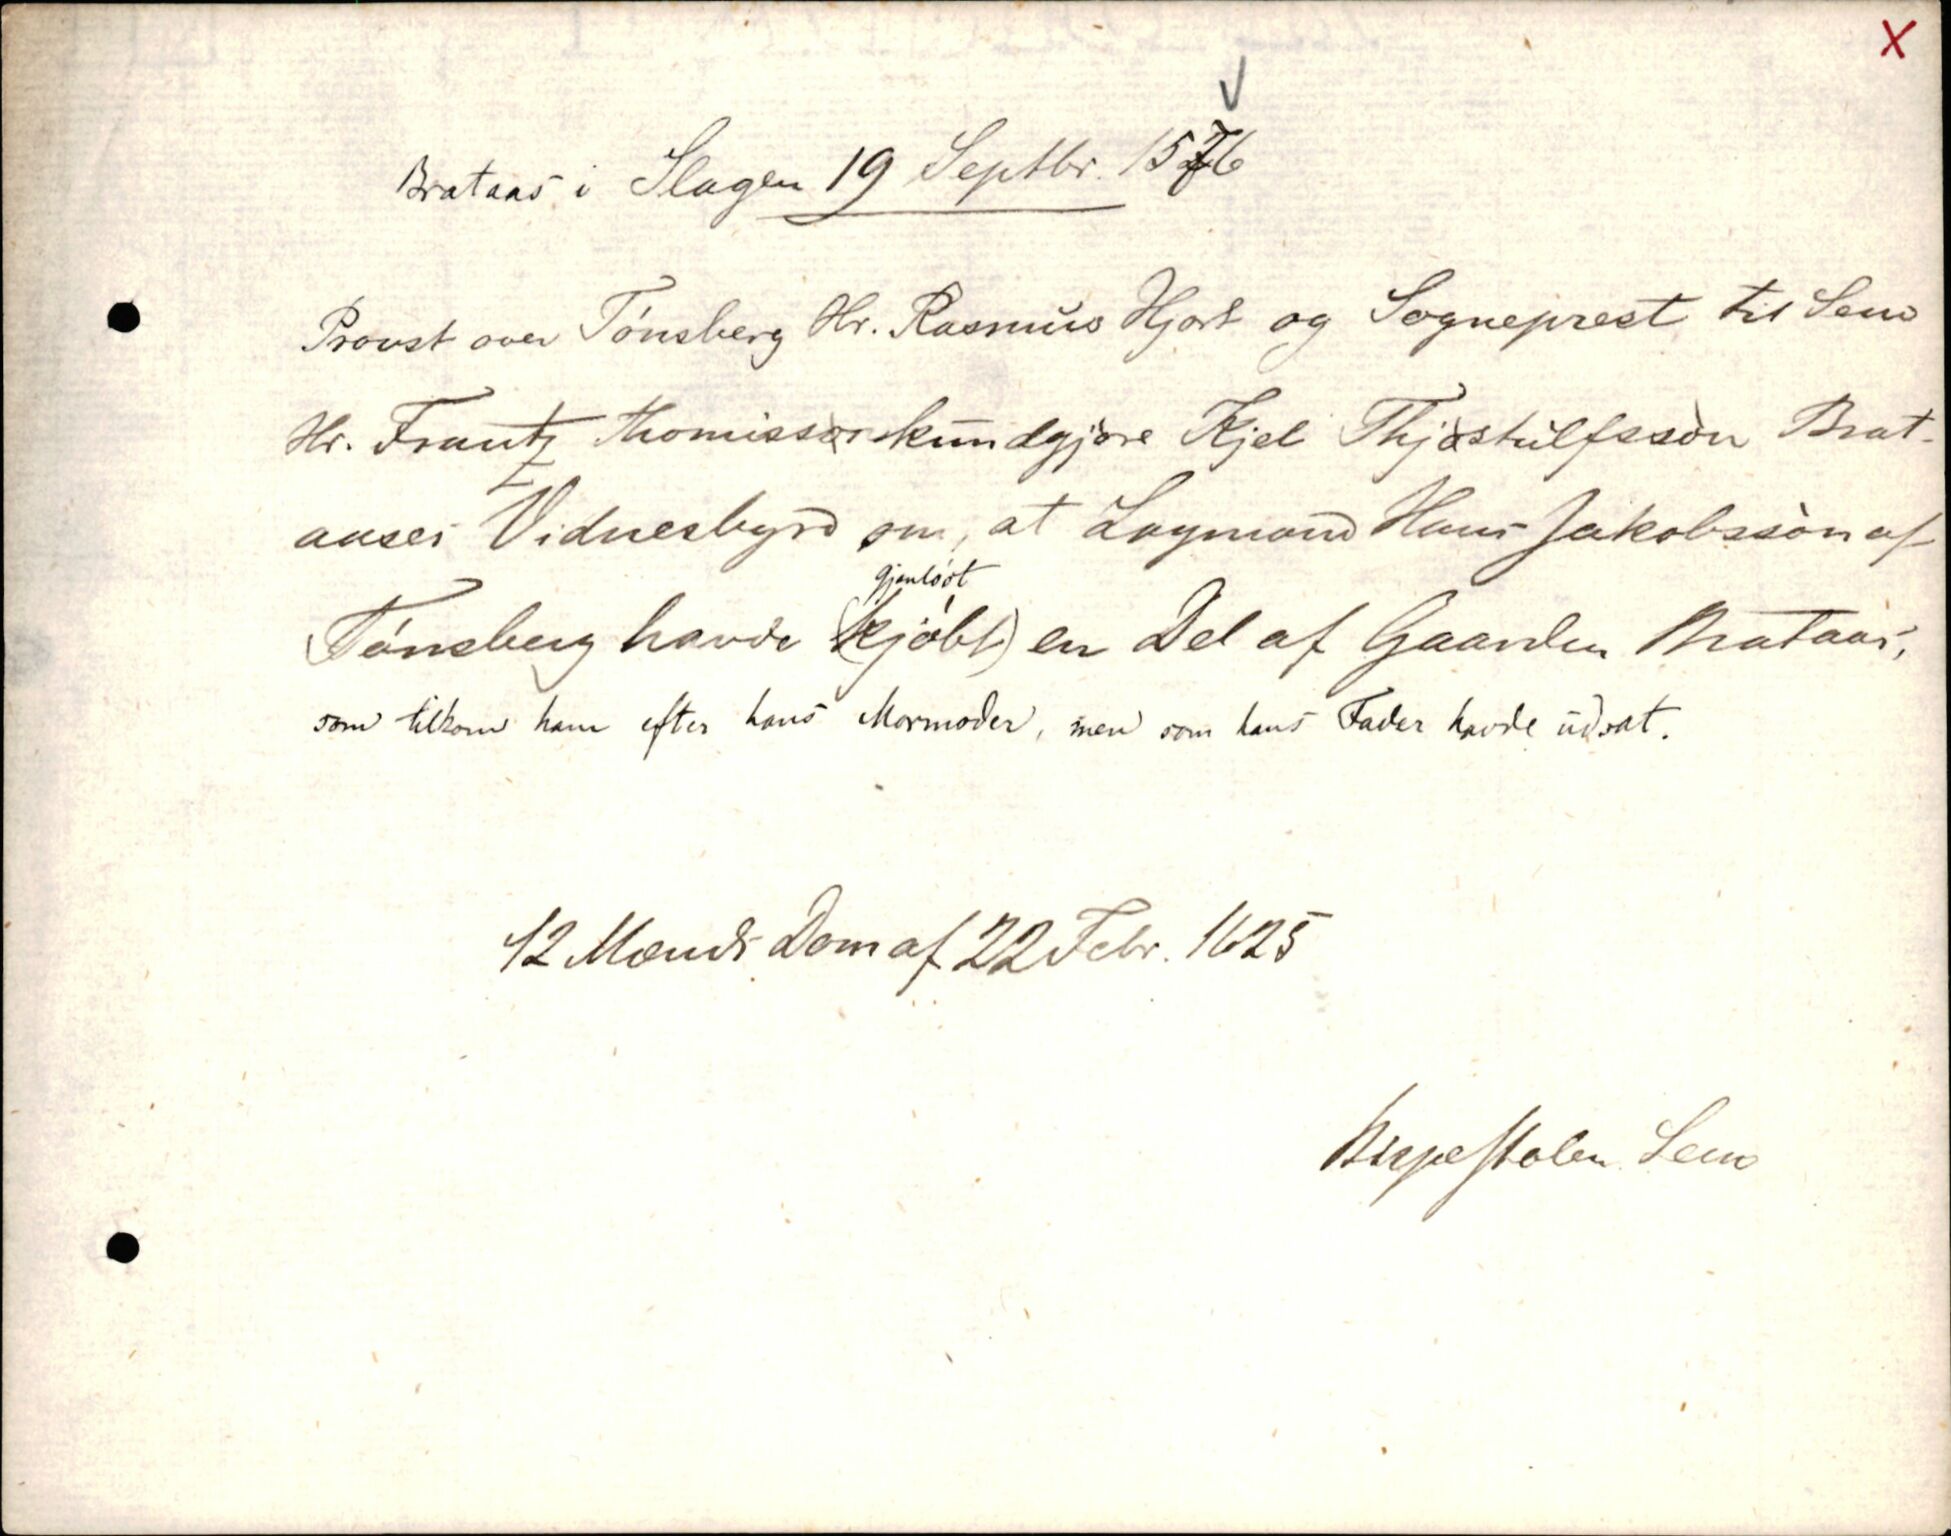 X
V
Brataas i Slagen 19 Septbr. 1576
Provst over Tönsberg Hr. Rasmus Hjort og Sogneprest til Sem
Hr. Frantz Thomissön kundgjøre Kjel Thjostulfssøn Brat-
aases Vidnesbyrd om, at Lagmand Hans Jakobssøn af
gjenlöst
Tønsberg havde (kjøbt) en Del af Gaarden Brataas,
som tilkom ham efter hans Mormoder, men som hans Fader havde udsat.
12 Mænds Dom af 22 Febr. 1625
Bispestolen Sem